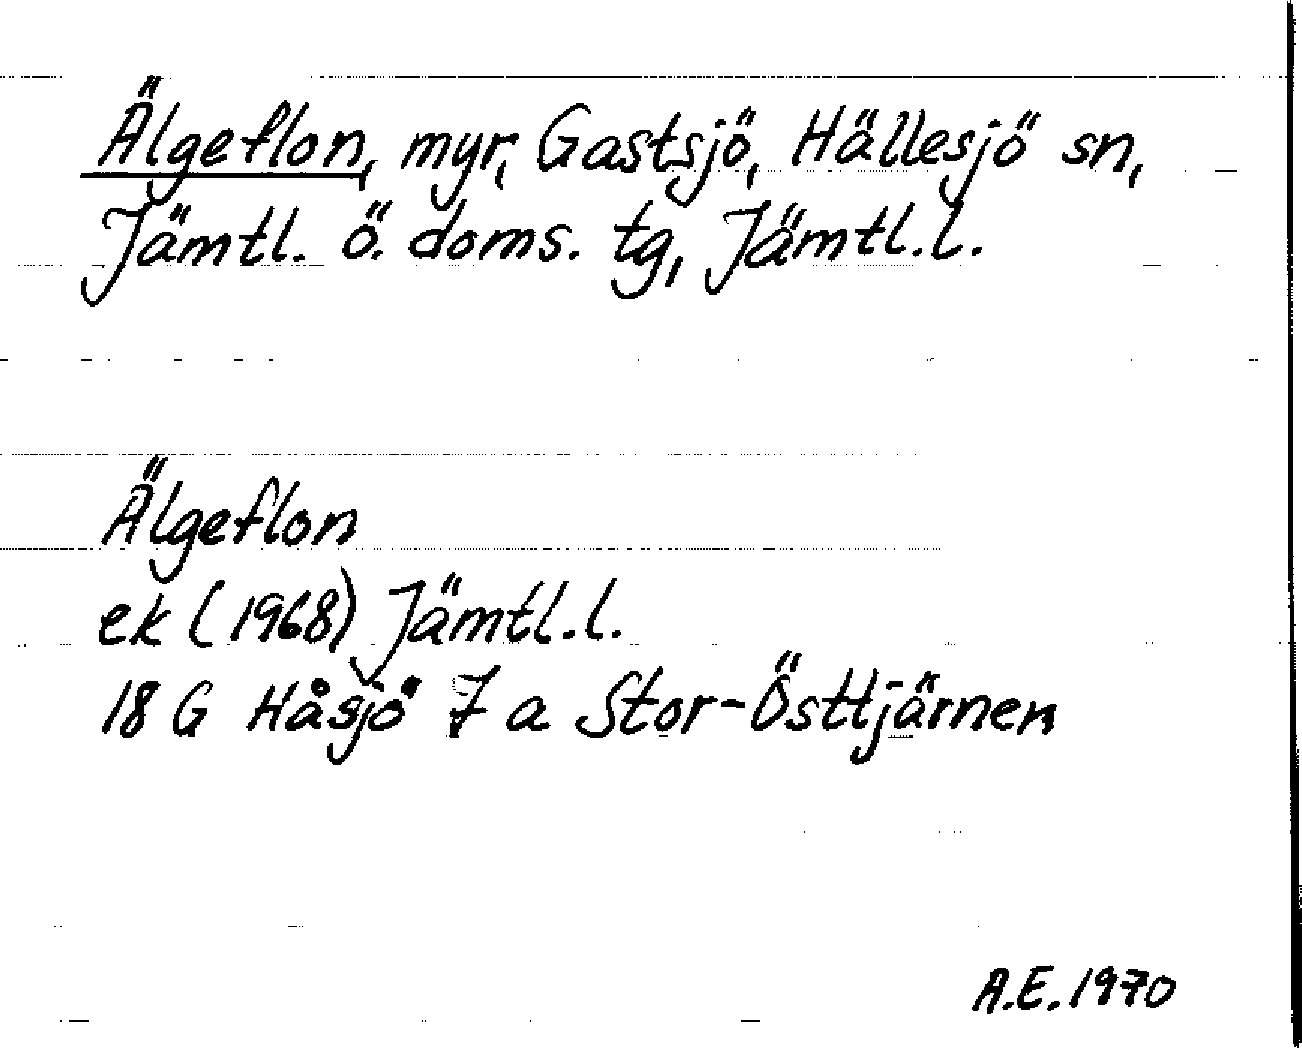 Älgeflon, myr, Gastsjö, Hällesjö sn,
Jämtl. ö. doms. tg, Jämtl.l.
Älgeflon
ek (1968) Jämtl.l.
18 G Håsjö 7 a Stor-Östtjärnen
A.E. 1970